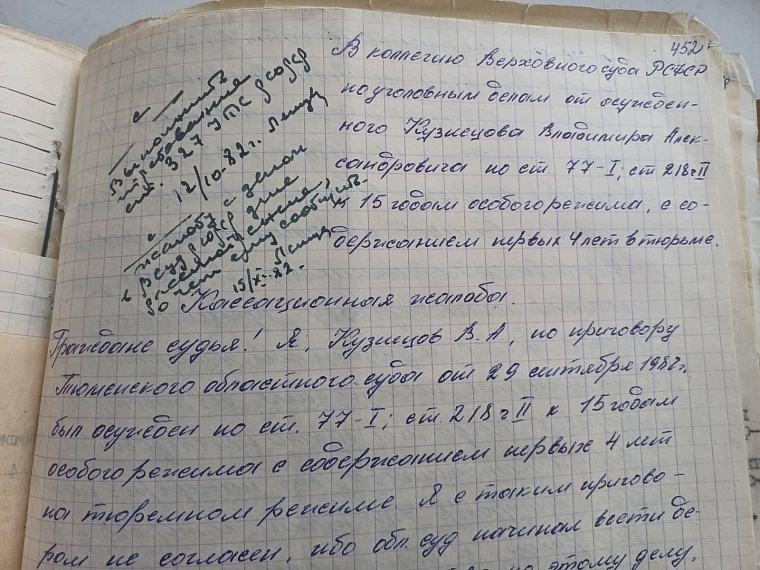 452
В коллегию Верховного суда РСФСР
по уголовным делам от осужден-
ного Кузнецова Владимира Алек-
сандровича по ст. 77-I; ст 218 ч II
к 15 годам особого режима, с со-
держанием первых 4 лет в тюрьме.
Выполнить
требование
ст. 327 УПК РСФСР
12/10.82 г.
жалобу с делом
в РСФСР для
рассмотрения,
о чем ему сообщить.
15/XI-82.
Кассационная жалоба.
Граждане судья! Я, Кузнецов В.А, по приговору
Тюменского областного суда от 29 сентября 1982 г.
был осужден по ст. 77-I; ст. 218 ч II к 15 годам
особого режима с содержанием первых 4 лет
на тюремном режиме. Я с таким пригово-
ром не согласен, ибо обл. суд начинал вести де-
по этому делу,